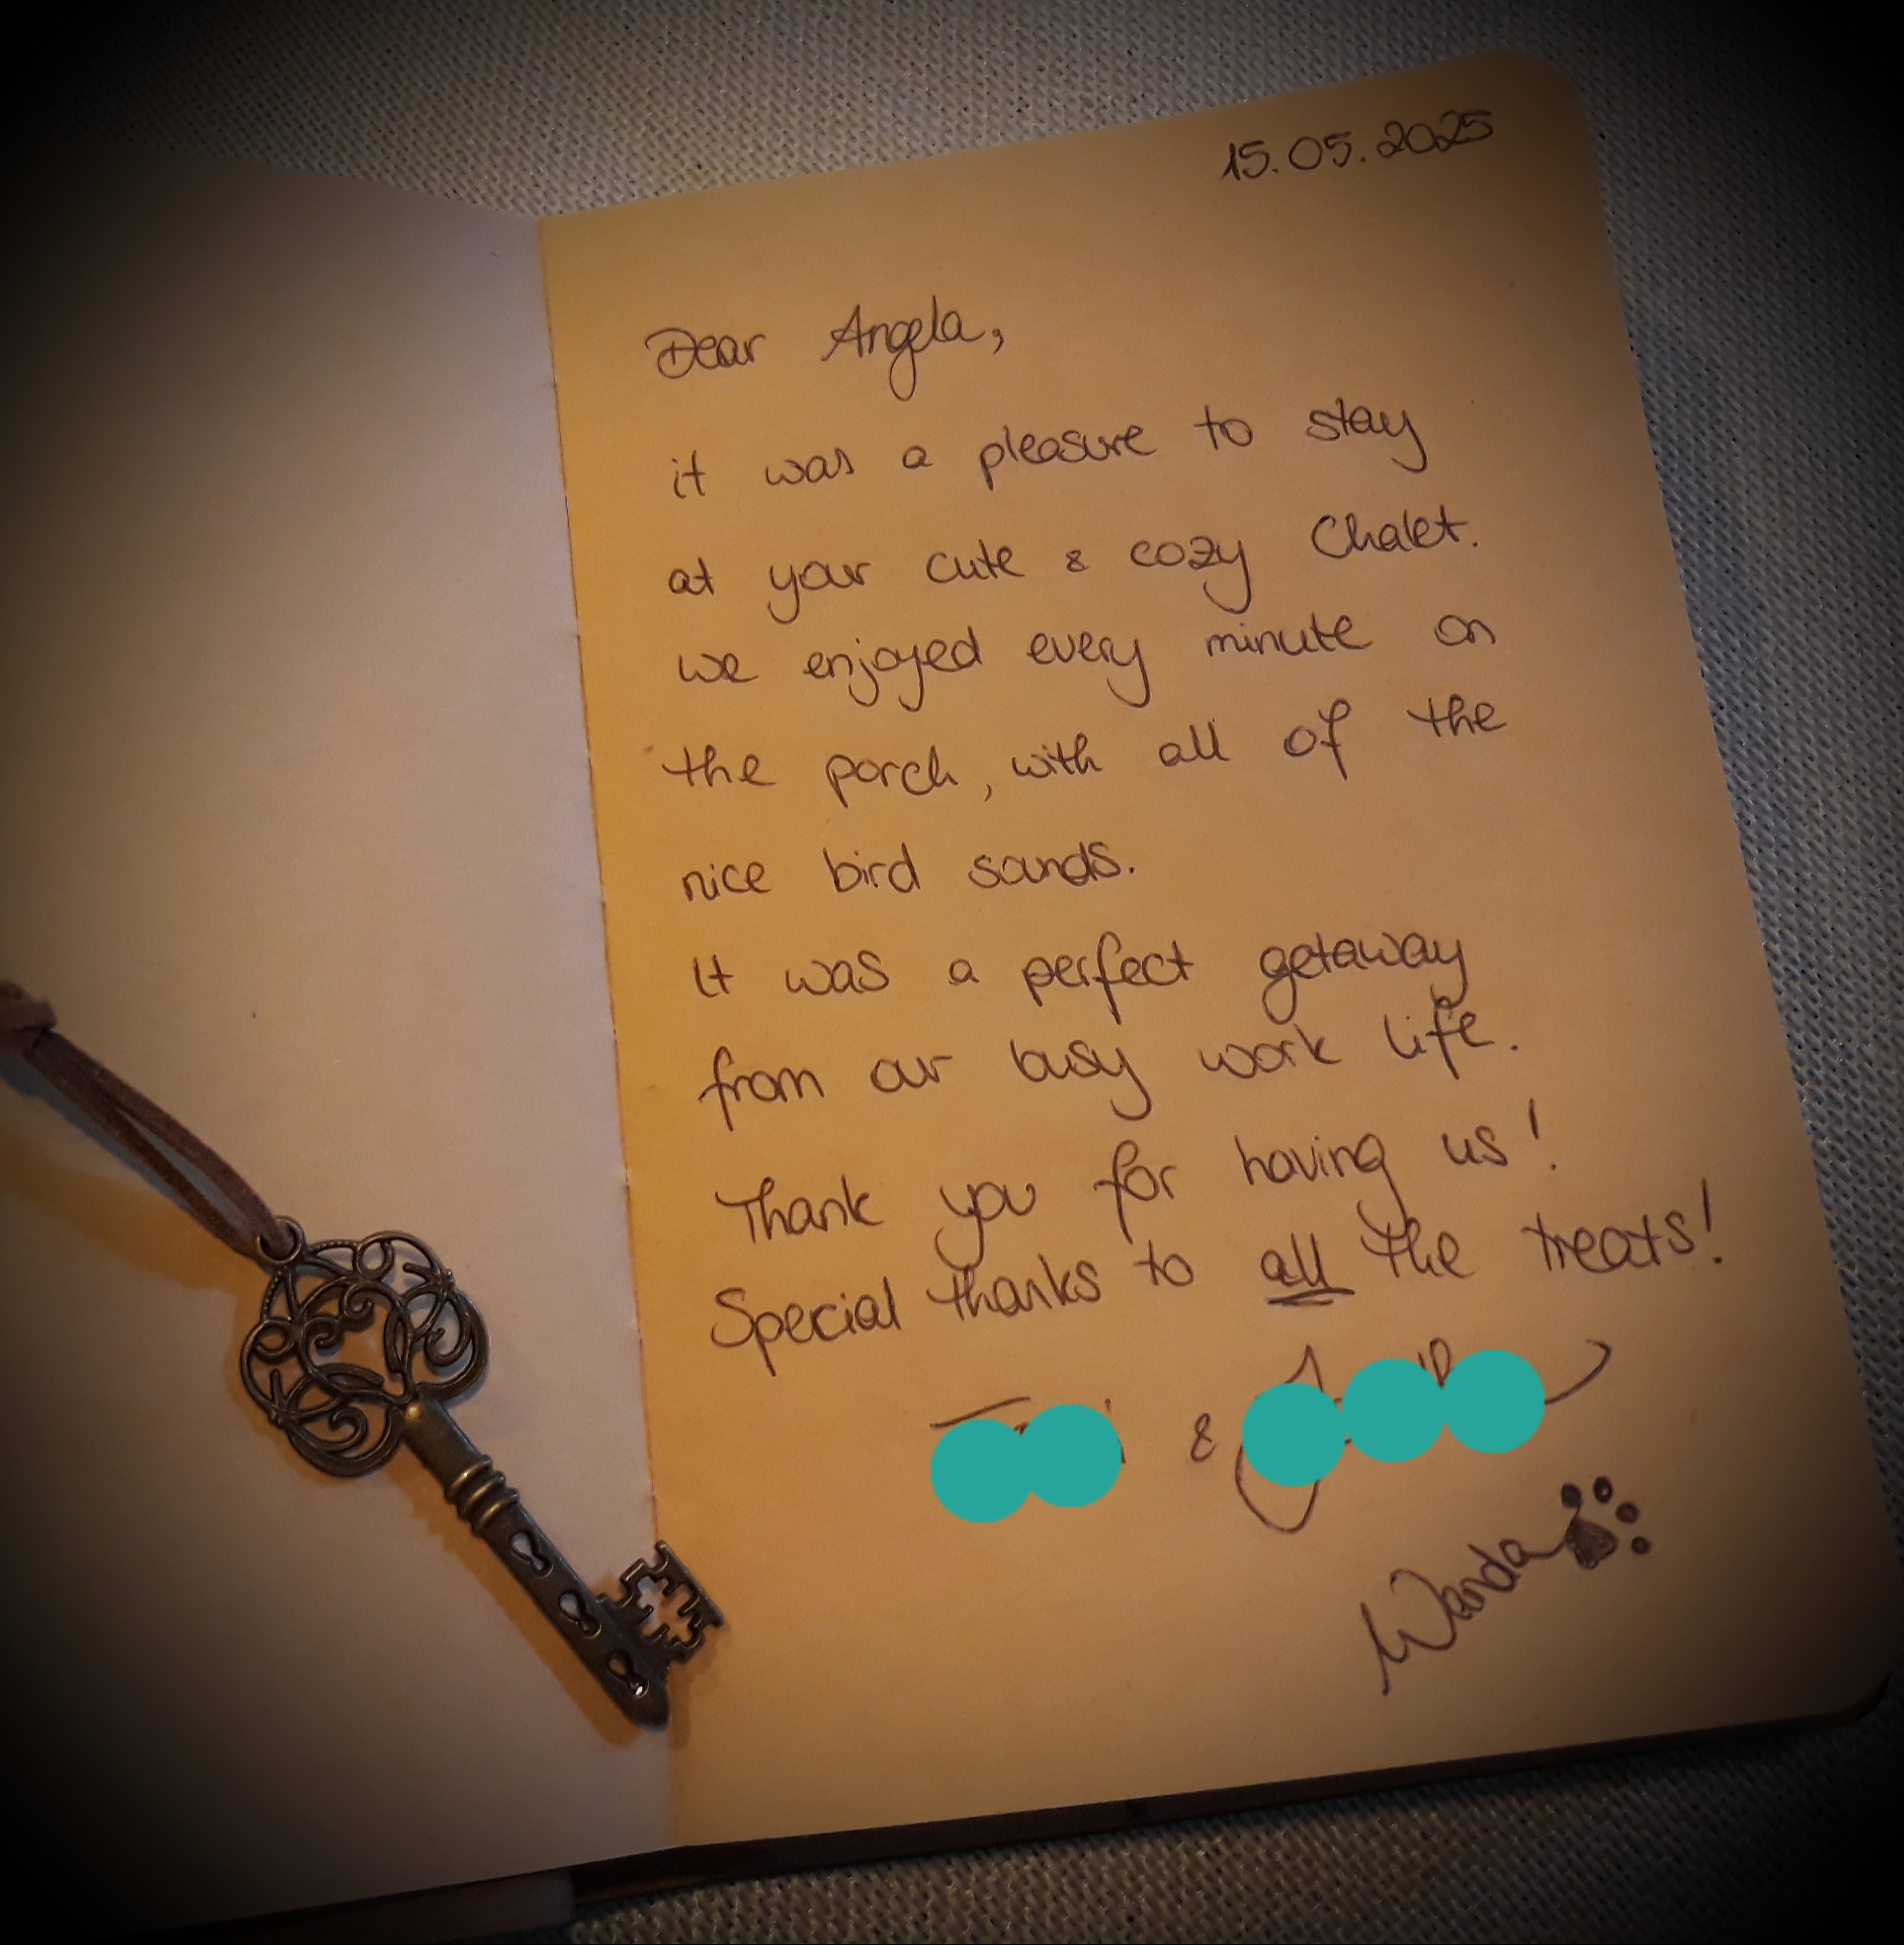 15.05.2025
Dear Angela,
it was a pleasure to stay
at your cute & cozy Chalet.
we enjoyed every minute on
the porch, with all of the
nice bird sounds.
It was a perfect getaway
from our busy work life.
Thank you for having us!
Special thanks to all the treats!
&
Wanda